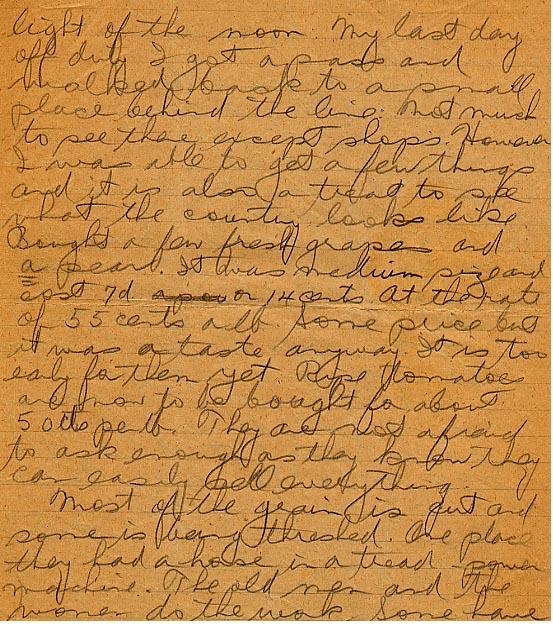 light of the moon. My last day
off duty I got a pass and
walked back to a small
place behind the line. Not much
to see there except shops. However
I was able to get a few things
and it is also a treat to see
what the country looks like
Bought a few fresh grapes and
a pear. It was medium size and
cost 7d or 14 cents At the rate
of 55 cents a lb. Some price but
it was a taste anyway. It is too
early for them yet. Ripe tomatoes
are now to be bought for about
50 cts per lb. They are not afraid
to ask enough as they know they
can easily sell everything.
Most of the grain is cut and
some is being threshed. One place
they had a horse in a tread power
machine. The old men and the
women do the work. Some have